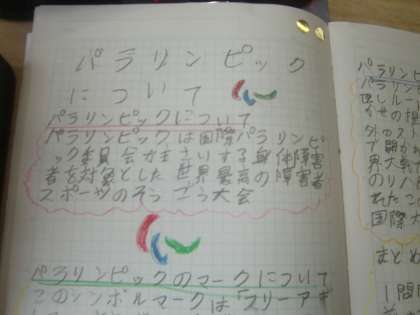 パラリンピック
について
パラリンピックについて
パラリンピックは国際パラリンピ
ック委員会がまさいする身体障害
者を対象とした世界最高の障害者
スポーツのそうごう大会
パラリンピックのマークについて
このシンボルマークは「スリーアギ
パラリンピ
外のス
で開か
界大戦
のリハ
国際大
まとめ
1問